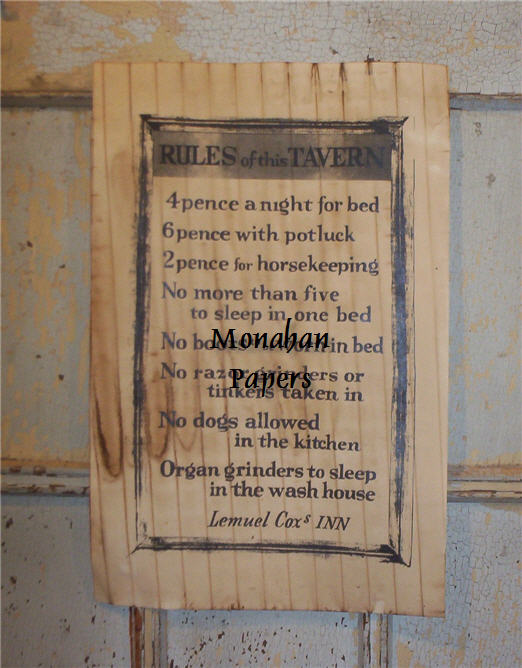 RULES of this TAVERN
4pence a night for bed
6pence with potluck
2pence for horsekeeping
No more than five
to sleep in one bed
Monahan
No boots worn in bed
Papers
No razor grinders or
tinkers taken in
No dogs allowed
in the kitchen
Organ grinders to sleep
in the wash house
Lemuel Coxs INN